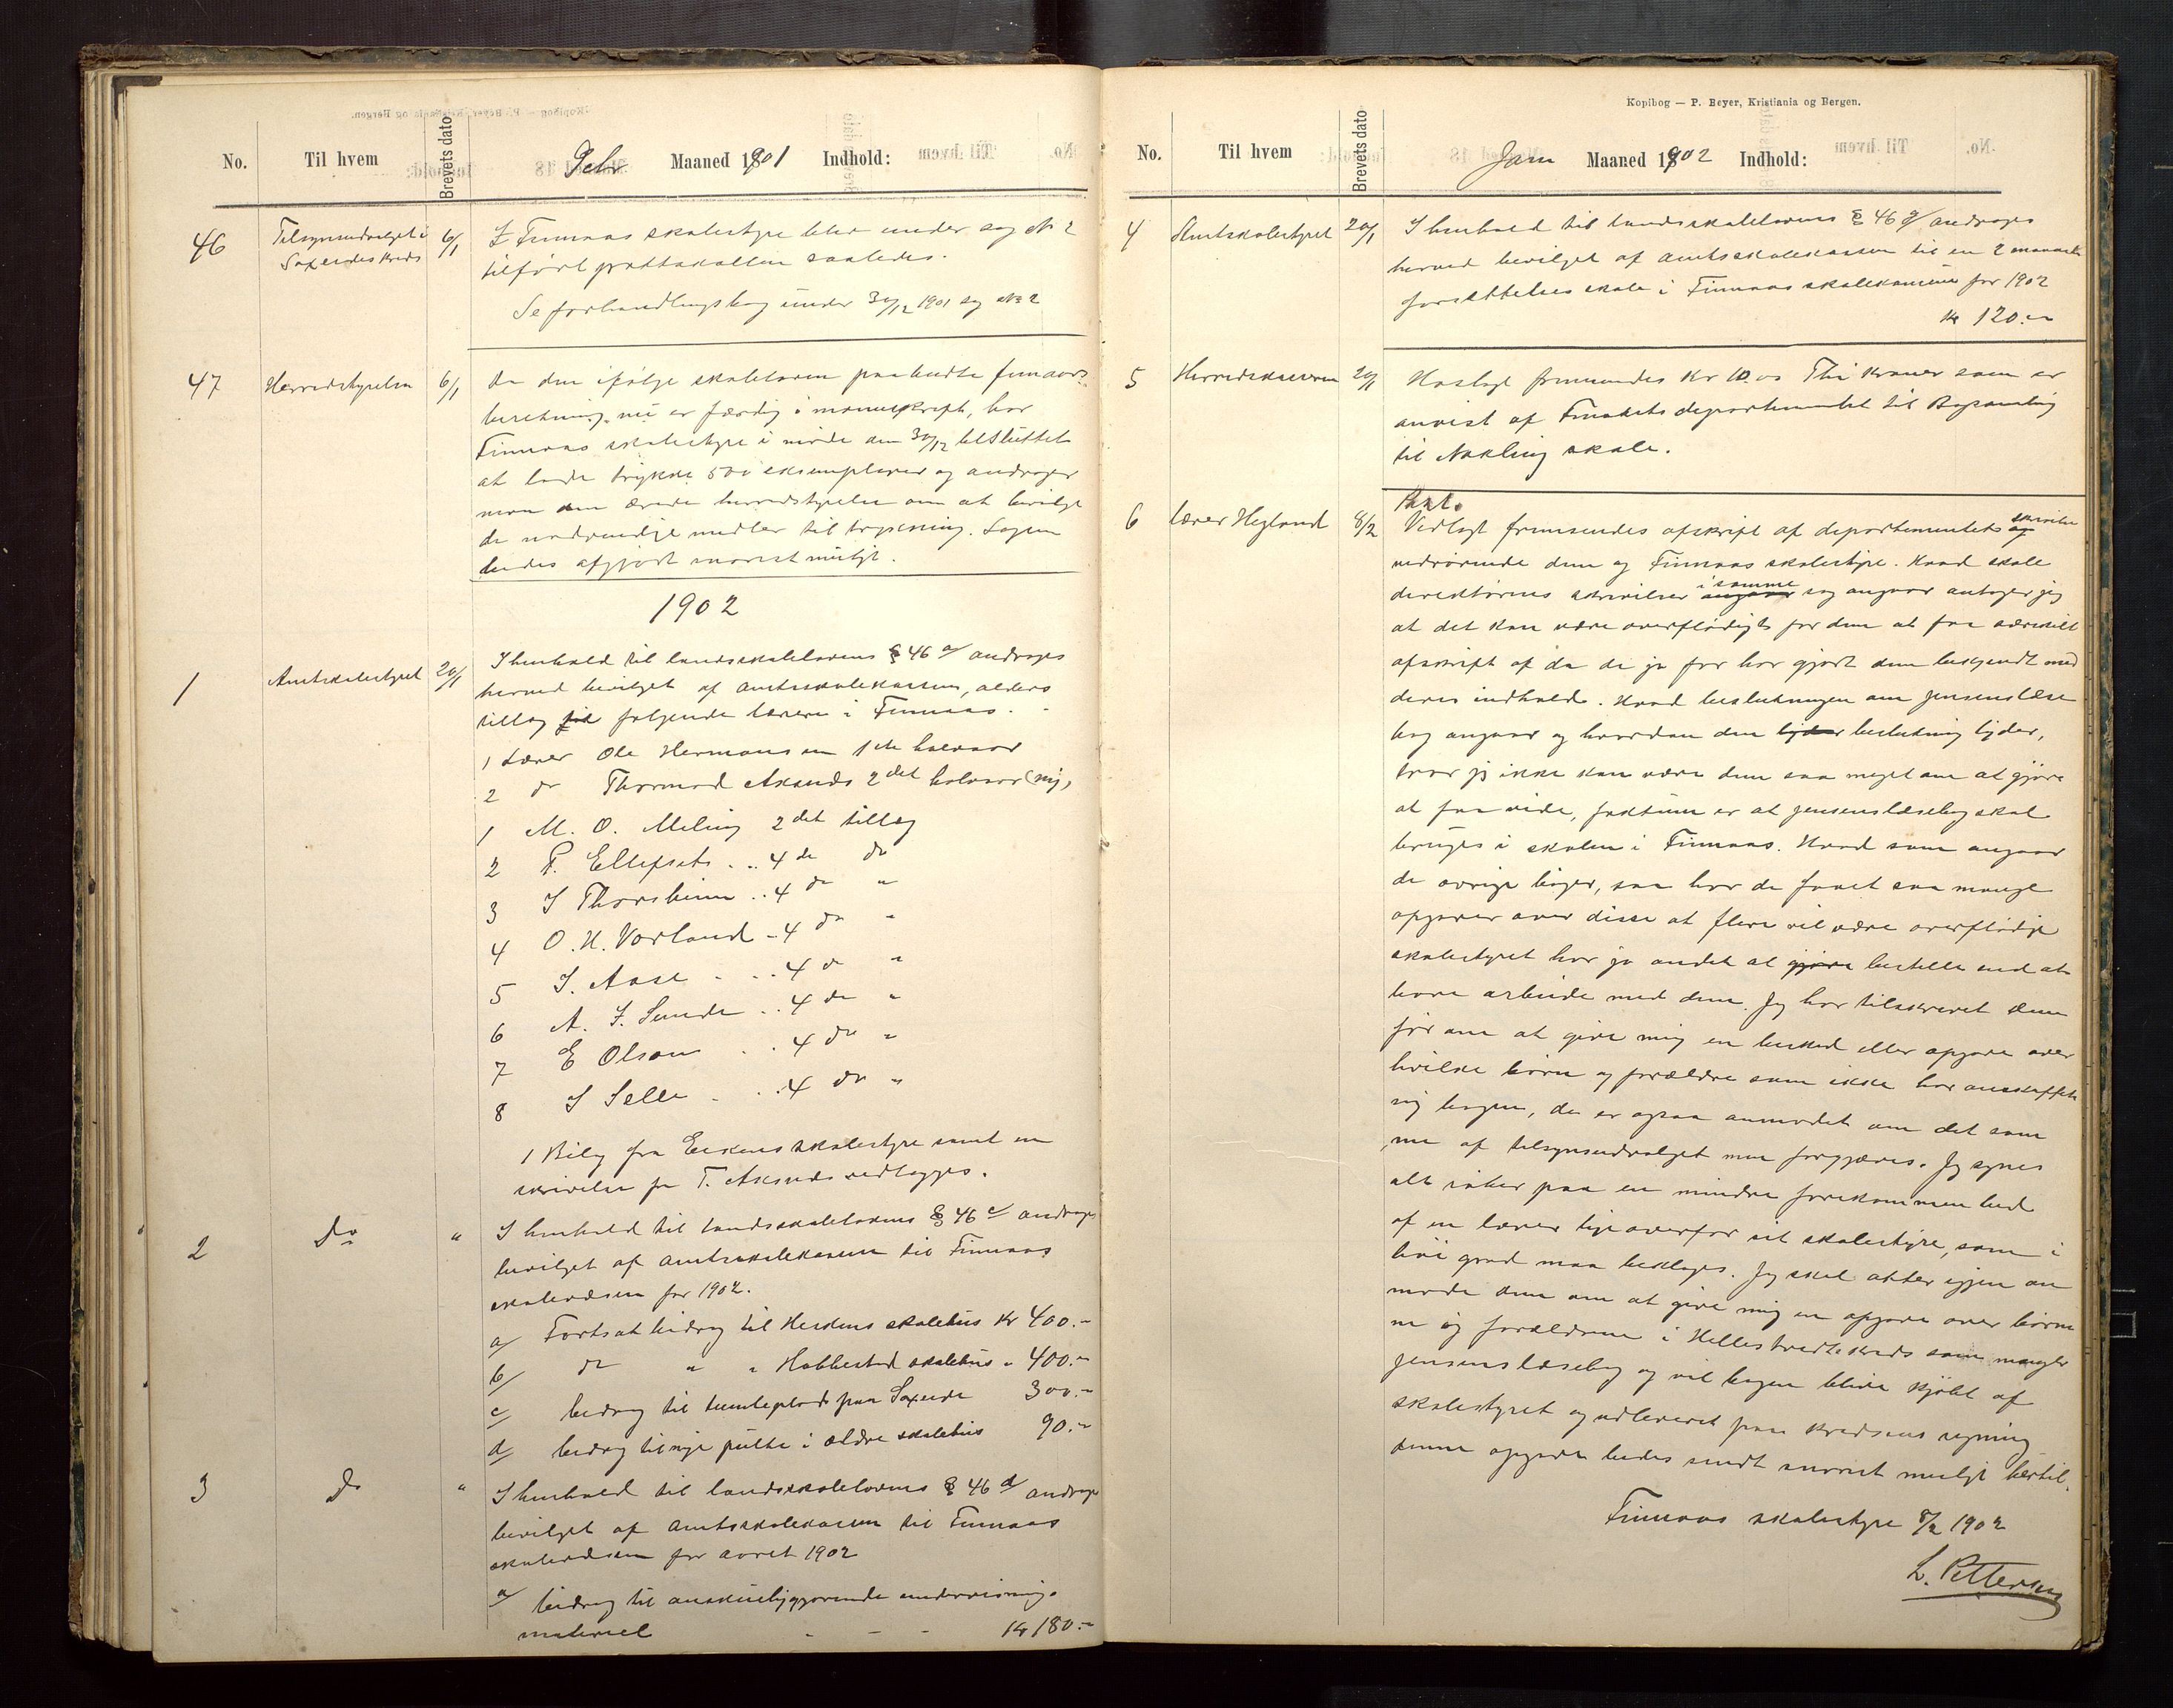 No. Til hvem Brevets dato Febr Maaned 1901 Indhold:
46 Tilsynsudvalget i Søxendes Kreds 6/1 I Finnaas skolestyre blev under sag No 2
tilført protokollen saaledes.
Se forhandlingsbog under 30/12 1901 sag No 2
47 Herredstyrelsen 6/1 Da den ifølge skoleloven paabudte femaars
beretning nu er færdig i manuskript, har
Finnaas skolestyre i møde den 30/12 besluttet
at lade trykke 500 eksemplarer og andrager
man den ærede herredstyrelse om at bevilge
de nødvendige midler til trykning. Sagen
bedes afgjort snarest muligt.
1902
1 Amtskolestyret 20/1 I henhold til landsskolelovens § 46 a/ andrages
herved bevilget af amtsskolekassen, alders
tillæg til følgende lærere i Finnaas.
1 Lærer Ole Hermansen 1ste halvaar
2 do Thormod Aksnes 2det halvaar (ny)
1 M. O. Meling 2det tillæg
2 P. Ellefsets .. 4de do
3 I Thorsheim .. 4 de "
4 O. H. Vorland .. 4 de "
5 I. Aase . .. 4 de "
6 A. I. Sunde .. 4 de "
7 E Olson . . 4 de "
8 I Selle . . 4 de "
1 Bilag fra skolestyre samt en
skrivelse fra T. Aksnes vedlægges.
2 Do " I henhold til landsskolelovens § 46 c/ andrages
bevilget af amtsskolekassen til Finnaas
skolevæsen for 1902.
a/ Fortsat bidrag til skolehus Kr 400.-
b/ do " " Habbestad skolehus " 400.-
c/ bidrag til tumleplads paa 300.-
d/ bidrag til nye pulte i ældre skolehus 90.-
3 Do " I henhold til landsskolelovens § 46 d/ andrages
bevilget af amtsskolekassen til Finnaas
skolevæsen for aaret 1902
a/ bidrag til anskueliggjørende undervisnings
materiel - - - Kr 180.-
Kopibog — P. Beyer, Kristiania og Bergen.
No. Til hvem Brevets dato Jan Maaned 1902 Indhold:
4 Amtskolestyret 20/1 I henhold til landsskolelovens § 46 g/ andrages
herved bevilget af amtsskolekassen til en 2 maaneds
forsættelsesskole i Finnaas skolekommune for 1902
Kr 120.-
5 Herredskasseren 20/1 Hoslagt fremsendes Kr 10.00 Thi Kroner som er
anvist af departementet til Bogsamling
til Nøkling skole.
6 Lærer Hegland 8/2 Vedlagt fremsendes afskrift af departementets skrivelse
vedrørende dem og Finnaas skolestyre. Hvad skole
direktørens skrivelser i samme sag angaar antager jeg
at det kan være overflødigt for dem at faa særskilt
afskrift af da de jo før har gjort dem bekjendt med
deres indhold. Hvad beslutningen om Jensenslæse
bog angaar og hvordan den beslutning lyder,
tror jeg ikke kan være dem saa meget om at gjøre
at faa vide, faktum er at Jensenslæsebog skal
bruges i skolen i Finnaas. Hvad som angaar
de øvrige bøger, saa har de faaet saa mange
opgaver over disse at flere vil være overflødige
skolestyret har jo andet at bestille end at
have arbeide med dem. Jeg har tilskrevet dem
før om at give mig en besked eller opgave over
hvilke børn og forældre som ikke har anskaffet
sig bogen, de er ogsaa anmodet om det sam
me af tilsynsudvalget men forgjæves. Jeg synes
alt tyder paa en mindre forekommenhed
af en lærer lige overfor sit skolestyre, som i
høi grad maa beklages. Jeg skal atter igjen an
mode dem om at give mig en opgave over børne
ne og forældrene i Hellesbredts kreds som mangler
Jensenslæsebog og vil bogen blive kjøbt af
skolestyret og udleveret paa kredsens regning
denne opgave bedes sendt snarest muligt hertil.
Finnaas skolestyre 8/2 1902
L. Pettersen